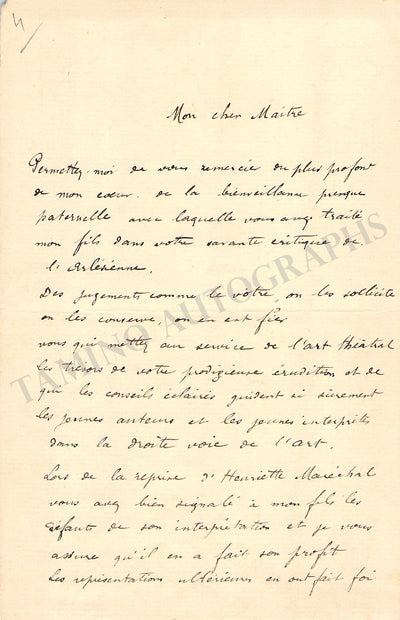 4/
Mon cher Maître
Permettez moi de vous remercier du plus profond
de mon coeur de la bienveillance presque
paternelle avec laquelle vous avez traité
mon fils dans votre savante critique de
l'Arlésienne.
Des jugements comme le vôtre, on les sollicite
on les conserve, on en est fier
vous qui mettez au service de l'art théâtral
les trésors de votre prodigieuse érudition et de
qui les conseils éclairés guident si sûrement
les jeunes auteurs et les jeunes interprètes
dans la droite voie de l'art.
Lors de la reprise d'Henriette Maréchal
vous avez bien signalé à mon fils les
défauts de son interprétation et je vous
assure qu'il en a fait son profit
les représentations ultérieures en ont fait foi
TAMINO AUTOGRAPHS